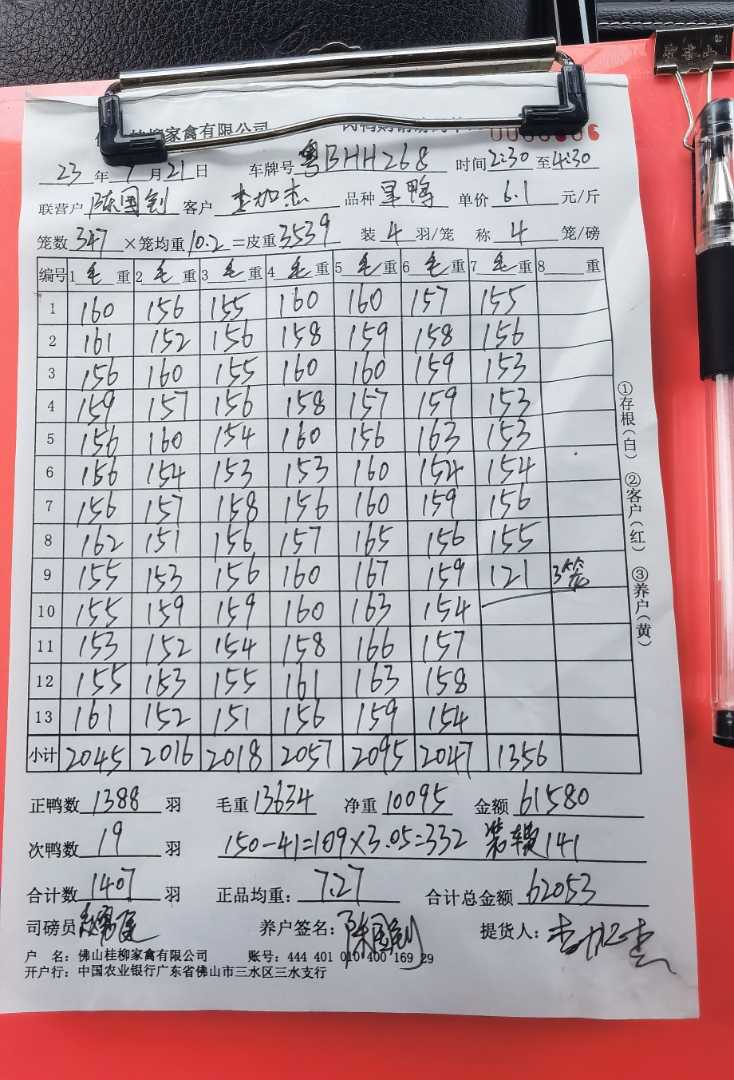 桂柳家禽有限公司
23 年 7 月 21 日 车牌号 粤BHH268 时间 2:30 至 4:30
联营户 陈国钊 客户 品种 单价 6.1 元/斤
笼数 347 ×笼均重 10.2 =皮重 3539 装 4 羽/笼 称 4 笼/磅
编号 1 毛 重 2 毛 重 3 毛 重 4 毛 重 5 毛 重 6 毛 重 7 毛 重 8 重
1 160 156 155 160 160 157 155
2 161 152 156 158 159 158 156
3 156 160 155 160 160 159 153
4 159 157 156 158 157 159 153
5 156 160 154 160 156 163 153
6 156 154 153 153 160 154 154
7 156 157 158 156 160 159 156
8 162 151 156 157 165 156 155
9 155 153 156 160 167 159 121 3笼
10 155 159 159 160 163 154
11 153 152 154 158 166 157
12 155 153 155 161 163 158
13 161 152 151 156 159 154
小计 2045 2016 2018 2057 2095 2047 1356
正鸭数 1388 羽 毛重 13634 净重 10095 金额 61580
次鸭数 19 羽 150-41=109×3.05=332 装车费141
合计数 1407 羽 正品均重: 7.27 合计总金额 62053
司磅员 养户签名: 陈国钊 提货人:
户 名: 佛山桂柳家禽有限公司 账号: 444 401 010 400 169 29
开户行: 中国农业银行广东省佛山市三水区三水支行
①存根(白) ②客户(红) ③养户(黄)